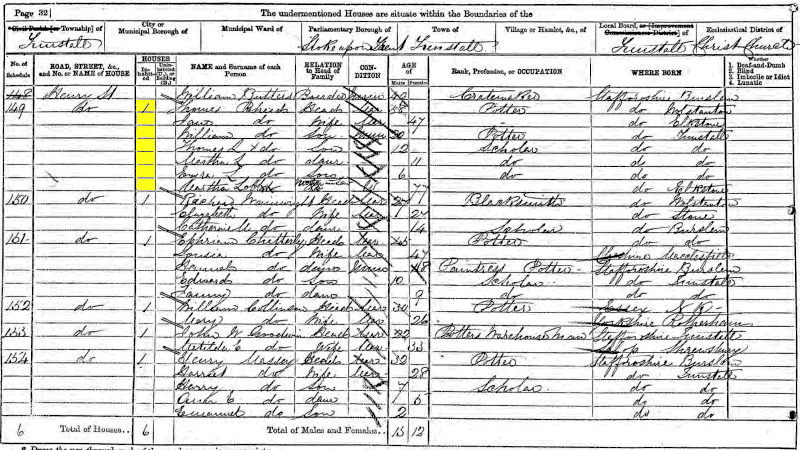 Page 32] The undermentioned Houses are situate within the Boundaries of the
Civil Parish [or Township] of City or Municipal Borough of Municipal Ward of Parliamentary Borough of Town of Village or Hamlet, &c., of Local Board, or [Improvement Commissioners District] of Ecclesiastical District of
Tunstall Stoke upon Trent Tunstall Tunstall Christ Church
No. of Schedule ROAD, STREET, &c., and No. or NAME of HOUSE HOUSES Inhabited Uninhabited (U.), or Building (B.) NAME and Surname of each Person RELATION to Head of Family CONDITION AGE of Males Females Rank, Profession, or OCCUPATION WHERE BORN Whether 1. Deaf-and-Dumb 2. Blind 3. Imbecile or Idiot 4. Lunatic
148 Henry St William Butters Cratemaker Staffordshire Burslem
149 do 1 Thomas Head Potter do Wolstanton
do Wife 47 do Elkstone
William do Son Potter do Tunstall
Thomas do Son 12 Scholar do do
Martha do daur 11 do do do
do Son 6 do do do
Martha 77 do Elkstone
150 do 1 Wainwright Head Blacksmith do Wolstanton
Elizabeth do Wife 27 do Stone
Catherine do daur 14 Scholar do Burslem
151 do 1 Head Potter do do
Louisa do Wife 47 Cheshire Macclesfield
Hannah do daur 18 Potter Staffordshire Burslem
Edward do Son 10 Scholar do Tunstall
Fanny do daur 9 do do do
152 do 1 William Collinson Head 30 Potter Essex N.K.
Mary do Wife 26 Yorkshire Rotherham
153 do 1 John W Goodwin Head 32 Potters Warehouse Man Staffordshire Tunstall
Matilda E do Wife 33 Shrewsbury
154 do 1 Henry Massey Head 32 Potter Staffordshire Burslem
Harriet do Wife 28 do Tunstall
Harry do Son 7 Scholar do do
do daur 5 do do
Emanuel do Son 2 do do
6 Total of Houses.. 6 Total of Males and Females.. 13 12